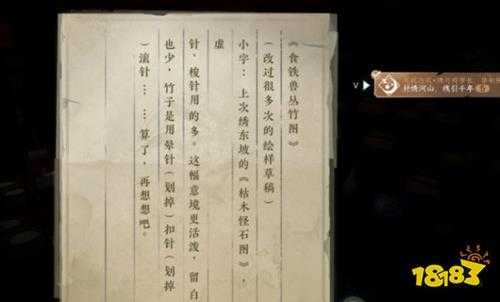 《食铁兽丛竹图》
（改过很多次的绘样草稿）
小字：上次绣东坡的《枯木怪石图》，
虚
针，梭针用的多。这幅意境更活泼，留白
也少，竹子是用晕针（划掉）扣针（划掉
）滚针……算了，再想想吧。
V
针绣河山，线引千年
18183